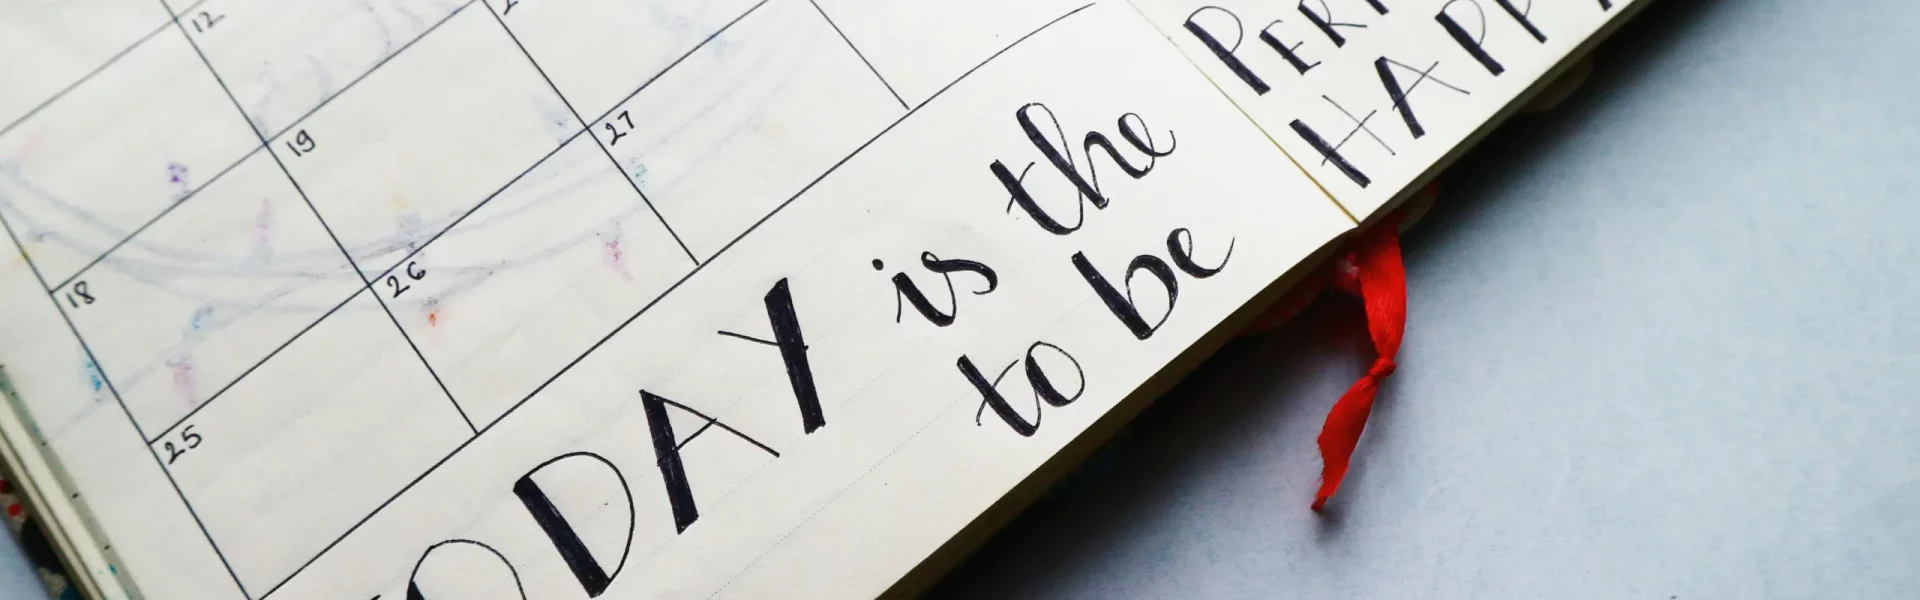 12
19
27
18
26
25
TODAY is the PER
to be HAPPY